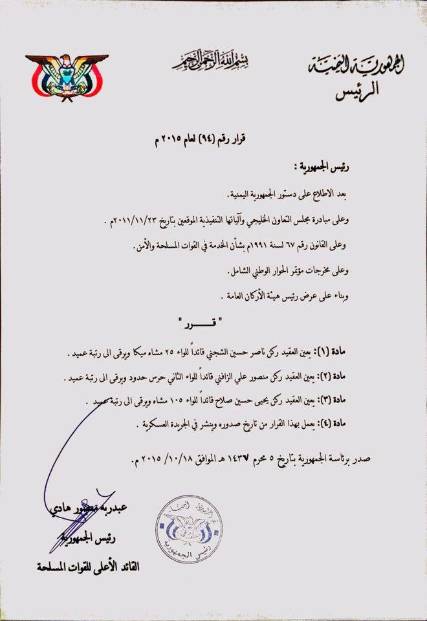 الجمهورية اليمنية
الرئيس
بسم الله الرحمن الرحيم
قرار رقم (٩٤) لعام ٢٠١٥ م
رئيس الجمهورية :
بعد الاطلاع على دستور الجمهورية اليمنية.
وعلى مبادرة مجلس التعاون الخليجي وآلياتها التنفيذية الموقعين بتاريخ ٢٠١١/١١/٢٣م .
وعلى القانون رقم ٦٧ لسنة ١٩٩١م بشأن الخدمة في القوات المسلحة والأمن.
وعلى مخرجات مؤتمر الحوار الوطني الشامل.
وبناء على عرض رئيس هيئة الأركان العامة .
" قــــرر "
مادة (١): يعين العقيد ركن ناصر حسين الشجني قائداً للواء ٢٥ مشاه ميكا ويرقى الى رتبة عميد .
مادة (٢): يعين العقيد ركن منصور علي الزافني قائداً للواء الثاني حرس حدود ويرقى الى رتبة عميد .
مادة (٣): يعين العقيد ركن يحيى حسين صلاح قائداً للواء ١٠٥ مشاه ويرقى الى رتبة عميد .
مادة (٤): يعمل بهذا القرار من تاريخ صدوره وينشر في الجريدة العسكرية.
صدر برئاسة الجمهورية بتاريخ ٥ محرم ١٤٣٧ هـ الموافق ٢٠١٥/١٠/١٨ م.
عبدربه منصور هادي
رئيس الجمهورية
القائد الأعلى للقوات المسلحة
رئيس الجمهورية